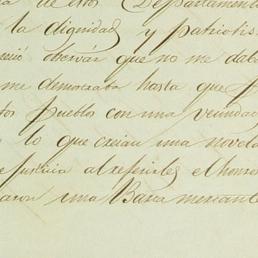 a de estos Departamento
la dignidad y patriotis
deció observar que no me dab
me demoraba hasta que p
tos pueblo con una vecindad
lo que creian una novela
Justicia al referirles el honro
aron una Barca mercante